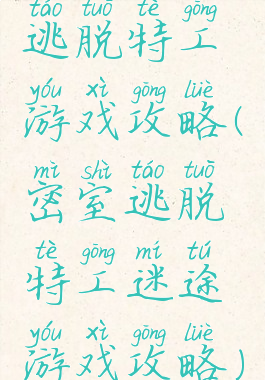 táo tuō tè gōng
逃脱特工
yóu xì gōng lüè
游戏攻略(
mì shì táo tuō
密室逃脱
tè gōng mí tú
特工迷途
yóu xì gōng lüè
游戏攻略)